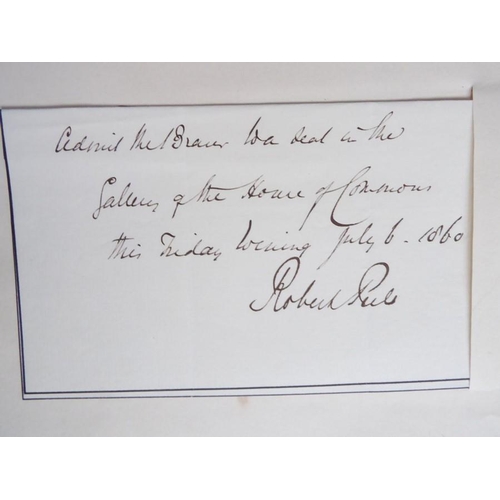 Admit the Bearer to a seat in the
Gallery of the House of Commons
this Friday Evening July 6 - 1860
Robert Peel